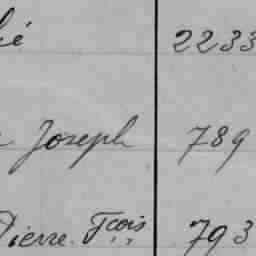 2233
Joseph 789
Pierre Fçois 793